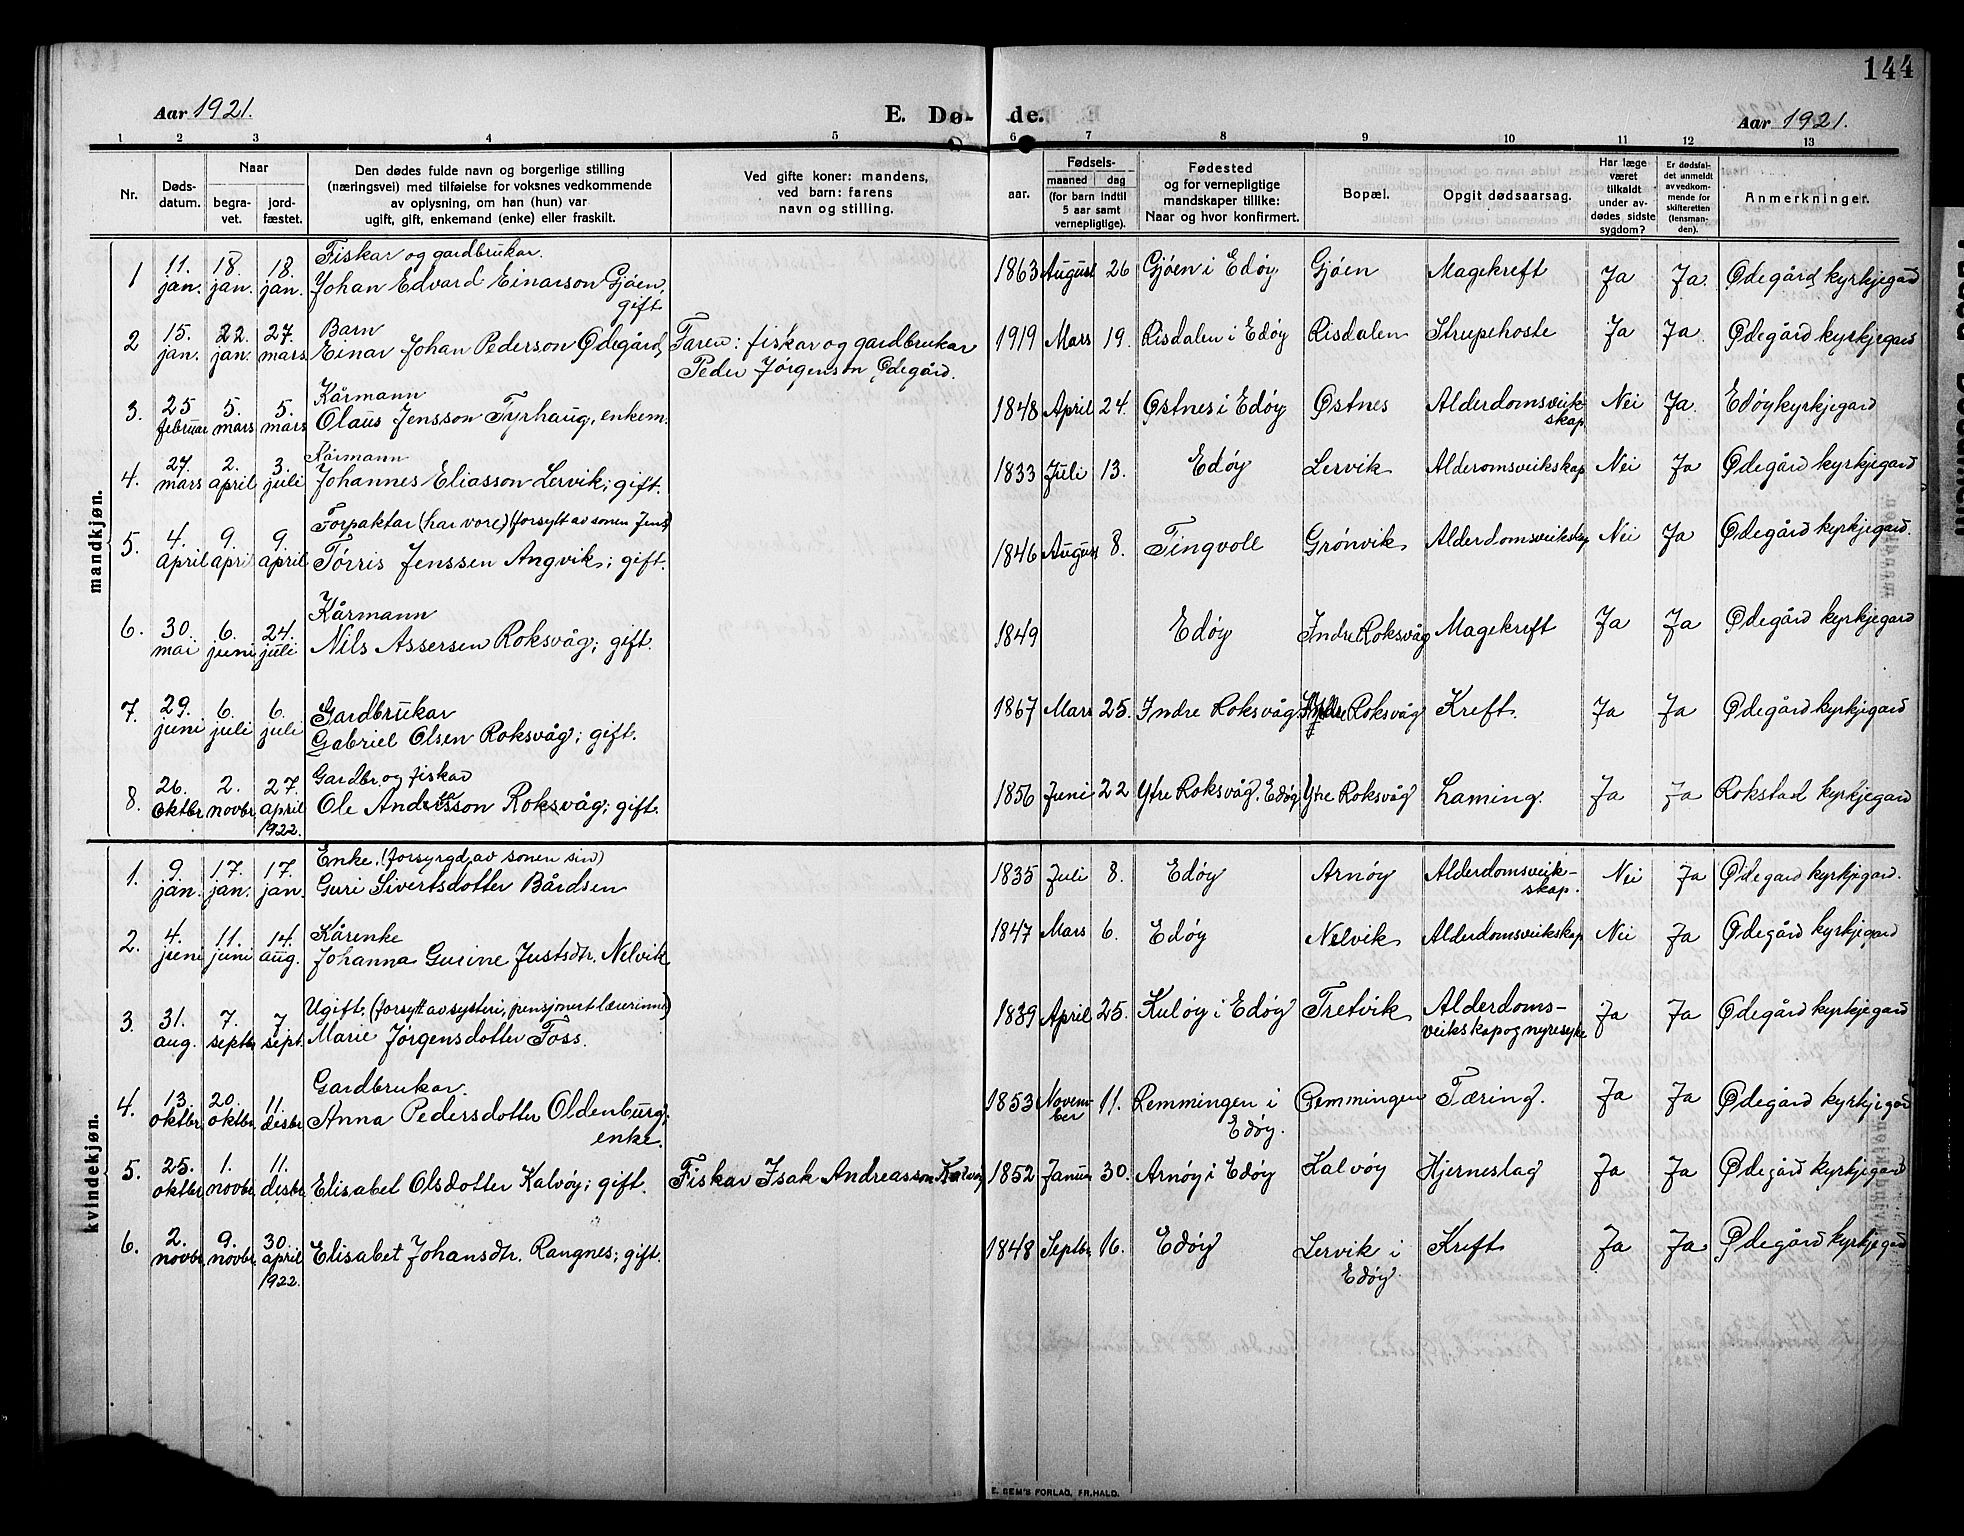 144
Aar 1921. E. Dø- de. Aar 1921.
1 2 3 4 5 6 7 8 9 10 11 12 13
Nr. Døds-datum. Naar begra-vet. jord-fæstet. Den dødes fulde navn og borgerlige stilling (næringsvei) med tilføielse for voksnes vedkommende av oplysning, om han (hun) var ugift, gift, enkemand (enke) eller fraskilt. Ved gifte koner: mandens, ved barn: farens navn og stilling. aar. Fødsels- maaned dag (for barn indtil 5 aar samt vernepligtige). Fødested og for vernepligtige mandskaper tillike: Naar og hvor konfirmert. Bopæl. Opgit dødsaarsag. Har læge været tilkaldt under av-dødes sidste sygdom? Er dødsfal-det anmeldt av vedkom-mende for skifteretten (lensman-den). Anmerkninger.
mandkjøn.
1 11. jan. 18. jan. 18. jan. Fiskar og gardbrukar. Johan Edvard Einarson Gjøen, gift 1863 August 26 Gjøen i Edøy Gjøen Magekreft Ja Ja. Ødegård kyrkjegard
2 15. jan. 22. jan. 27. mars Barn Einar Johan Pederson Ødegård, Faren: fiskar og gardbrukar Peder Jørgenson Ødegård. 1919 Mars 19. Risdalen i Edøy Risdalen Strupehoste Ja Ja. Ødegård kyrkjegard
3. 25 februar 5. mars 5. mars Kårmann Olaus Jensson Tyrhaug, enkem. 1848 April 24. Østnes i Edøy Østnes Alderdomsveik-skap Nei Ja. Edøy kyrkjegard
4. 27. mars 2. april 3. juli Kårmann Johannes Eliasson Lervik; gift. 1833 Juli 13. Edøy Lervik Alderomsveikskap Nei Ja Ødegård kyrkjegard
5. 4. april 9. april 9. april Forpaktar (har vore) (forsytt av sonen Jens) Tørris Jenssen Angvik; gift. 1846 August 8. Tingvoll Grønvik Alderdomsveikskap Nei Ja Ødegård kyrkjegard.
6. 30. mai 6. juni 24. juli Kårmann Nils Assersen Roksvåg; gift. 1849 Edøy Indre Roksvåg Magekreft Ja Ja Ødegård kyrkjegard
7. 29. juni 6. juli 6. juli Gardbrukar Gabriel Olsen Roksvåg; gift. 1867 Mars 25. Indre Roksvåg Indre Roksvåg Kreft. Ja Ja Ødegård kyrkjegard
8. 26. oktbr. 2. novbr. 27. april 1922. Gardbr. og fiskar Ole Andersson Roksvåg; gift. 1856 Juni 22 Ytre Roksvåg, Edøy Ytre Roksvåg Laming. Ja Ja Rokstad kyrkjegard
kvindekjøn.
1. 9. jan. 17. jan. 17. jan. Enke. (forsyrgd av sonen sin) Guri Sivertsdotter Bårdsen 1835 Juli 8. Edøy Arnøy Alderdomsveik-skap. Nei Ja Ødegard kyrkjegard.
2. 4. juni 11. juni 14. aug. Kårenke Johanna Gurine Justsdtr. Nelvik 1847 Mars 6. Edøy Nelvik Alderdomsveikskap Nei Ja Ødegård kyrkjegard
3. 31. aug. 7. septbr. 7. sept. Ugift, (forsytt av systeri, pensjonert lærerinne) Marie Jørgensdotter Foss. 1839 April 25. Kuløy i Edøy Tretvik Alderdoms-veikskap og nyresyke Ja Ja Ødegård kyrkjegard
4. 13. oktbr. 20. oktbr. 11. desbr. Gardbrukar. Anna Pedersdotter Oldenburg; enke. 1853 Novem-ber 11. Remmingen i Edøy. Remmingen Tæring. Ja Ja Ødegård kyrkjegard
5. 25. oktbr. 1. novbr. 11. desbr. Elisabet Olsdotter Kalvøy; gift. Fiskar Isak Andreasson Kalvøy 1852 Januar 30. Arnøy i Edøy Kalvøy Hjerneslag Ja Ja Ødegård kyrkjegard
6. 2. novbr. 9. novbr. 30. april 1922. Elisabet Johansdtr. Rangnes; gift. 1848 Septbr. 16. Edøy Lervik i Edøy. Kreft Ja Ja Ødegård kyrkjegard
E. SEM'S FORLAG, FR.HALD.